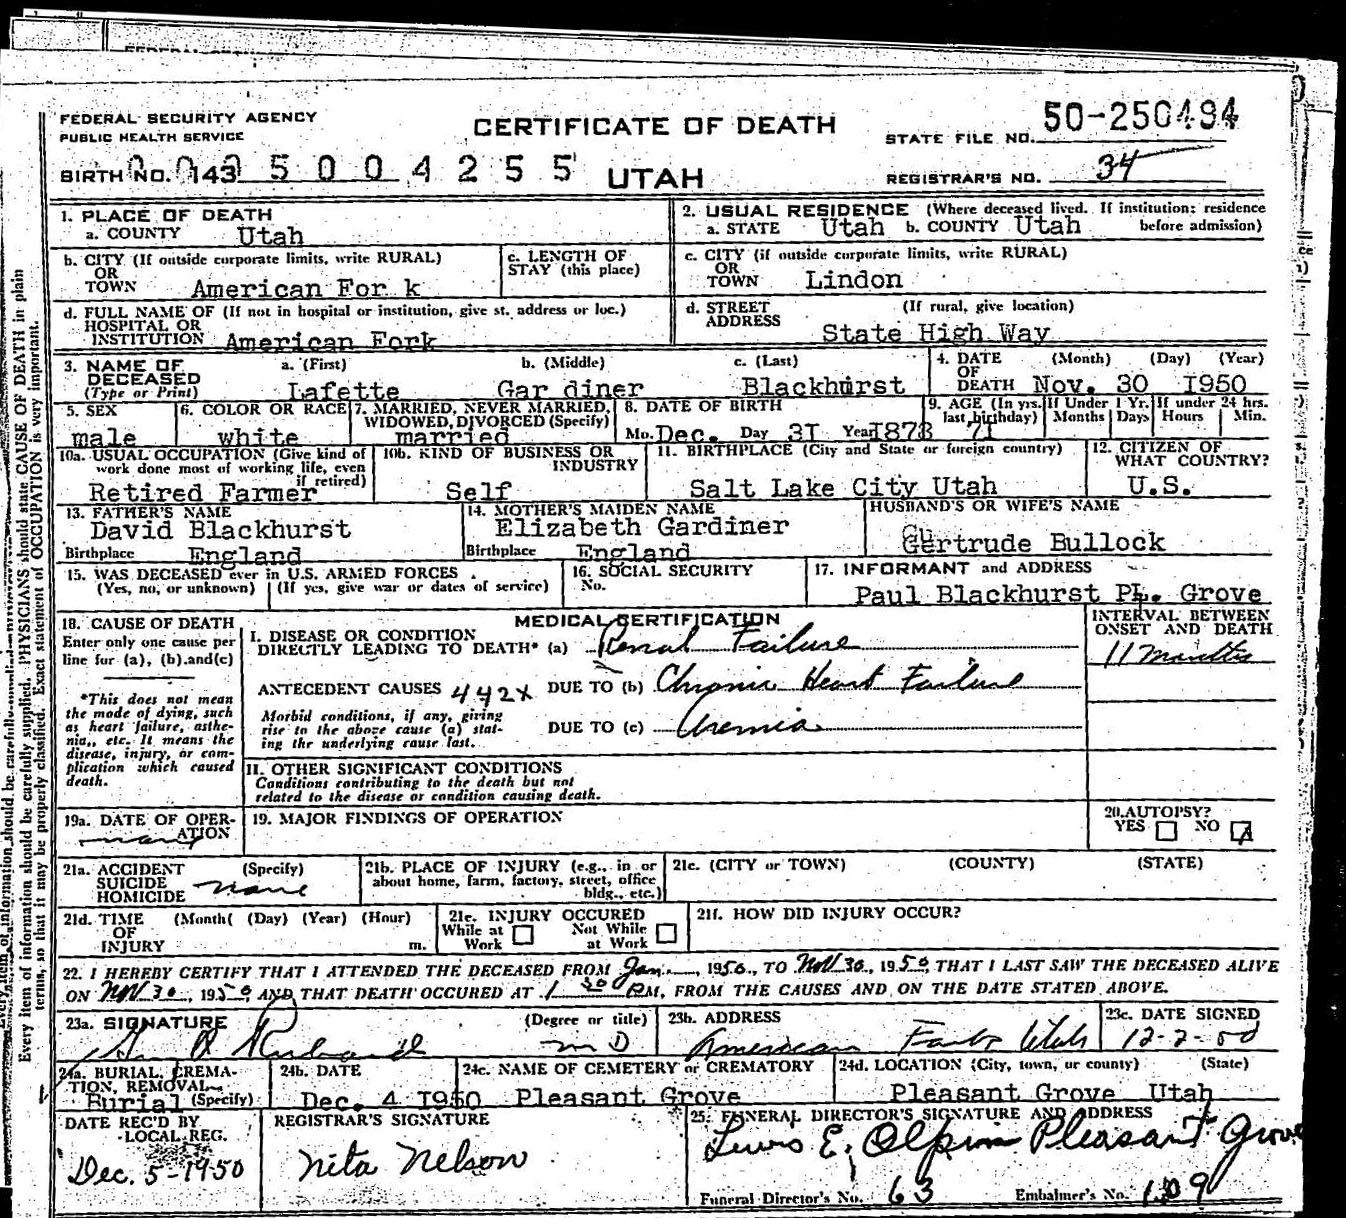 FEDERAL SECURITY AGENCY
PUBLIC HEALTH SERVICE
CERTIFICATE OF DEATH
STATE FILE NO. 50-250494
BIRTH NO. 143 5 0 0 4 2 5 5
UTAH
REGISTRAR'S NO. 34
1. PLACE OF DEATH
a. COUNTY Utah
2. USUAL RESIDENCE (Where deceased lived. If institution: residence before admission)
a. STATE Utah b. COUNTY Utah
b. CITY (If outside corporate limits, write RURAL)
OR
TOWN American For k
c. LENGTH OF
STAY (this place)
c. CITY (if outside corporate limits, write RURAL)
OR
TOWN Lindon
d. FULL NAME OF (If not in hospital or institution, give st. address or loc.)
HOSPITAL OR
INSTITUTION American Fork
d. STREET (If rural, give location)
ADDRESS State High Way
3. NAME OF
DECEASED
(Type or Print)
a. (First) b. (Middle) c. (Last)
Lafette Gar diner Blackhurst
4. DATE (Month) (Day) (Year)
OF
DEATH Nov. 30 1950
5. SEX
male
6. COLOR OR RACE
white
7. MARRIED, NEVER MARRIED,
WIDOWED, DIVORCED (Specify)
married
8. DATE OF BIRTH
Mo. Dec. Day 31 Year 1878
9. AGE (In yrs.
last birthday) 71
If Under 1 Yr.
Months Days
If under 24 hrs.
Hours Min.
10a. USUAL OCCUPATION (Give kind of
work done most of working life, even
if retired)
Retired Farmer
10b. KIND OF BUSINESS OR
INDUSTRY
Self
11. BIRTHPLACE (City and State or foreign country)
Salt Lake City Utah
12. CITIZEN OF
WHAT COUNTRY?
U.S.
13. FATHER'S NAME
David Blackhurst
Birthplace England
14. MOTHER'S MAIDEN NAME
Elizabeth Gardiner
Birthplace England
HUSBAND'S OR WIFE'S NAME
Gertrude Bullock
15. WAS DECEASED ever in U.S. ARMED FORCES
(Yes, no, or unknown) (If yes, give war or dates of service)
16. SOCIAL SECURITY
No.
17. INFORMANT and ADDRESS
Paul Blackhurst PL. Grove
18. CAUSE OF DEATH
Enter only one cause per
line for (a), (b).and(c)
*This does not mean
the mode of dying, such
as heart failure, asthe-
nia,, etc. It means the
disease, injury, or com-
plication which caused
death.
MEDICAL CERTIFICATION
I. DISEASE OR CONDITION
DIRECTLY LEADING TO DEATH* (a) Renal Failure
ANTECEDENT CAUSES 442x DUE TO (b) Chronic Heart Failure
Morbid conditions, if any, giving
rise to the above cause (a) stat-
ing the underlying cause last.
DUE TO (c) Uremia
INTERVAL BETWEEN
ONSET AND DEATH
11 months
II. OTHER SIGNIFICANT CONDITIONS
Conditions contributing to the death but not
related to the disease or condition causing death.
19a. DATE OF OPER-
ATION
none
19. MAJOR FINDINGS OF OPERATION
20. AUTOPSY?
YES NO
21a. ACCIDENT (Specify)
SUICIDE none
HOMICIDE
21b. PLACE OF INJURY (e.g., in or
about home, farm, factory, street, office
bldg., etc.)
21c. (CITY or TOWN) (COUNTY) (STATE)
21d. TIME (Month( (Day) (Year) (Hour)
OF
INJURY m.
21e. INJURY OCCURED
While at Not While
Work at Work
21f. HOW DID INJURY OCCUR?
22. I HEREBY CERTIFY THAT I ATTENDED THE DECEASED FROM Jan., 1950, TO Nov 30, 1950, THAT I LAST SAW THE DECEASED ALIVE
ON Nov 30, 1950, AND THAT DEATH OCCURED AT 1 30 PM, FROM THE CAUSES AND ON THE DATE STATED ABOVE.
23a. SIGNATURE (Degree or title)
M D
23b. ADDRESS
American Fork Utah
23c. DATE SIGNED
12-2-50
24a. BURIAL, CREMA-
TION, REMOVAL
Burial (Specify)
24b. DATE
Dec. 4 1950
24c. NAME OF CEMETERY or CREMATORY
Pleasant Grove
24d. LOCATION (City, town, or county) (State)
Pleasant Grove Utah
DATE REC'D BY
LOCAL REG.
Dec. 5-1950
REGISTRAR'S SIGNATURE
Nita Nelson
25. FUNERAL DIRECTOR'S SIGNATURE AND ADDRESS
Lewis E. Olpin Pleasant Grove
Funeral Director's No. 63 Embalmer's No. 109
Every item of information should be carefully supplied. PHYSICIANS should state CAUSE OF DEATH in plain
terms, so that it may be properly classified. Exact statement of OCCUPATION is very important.